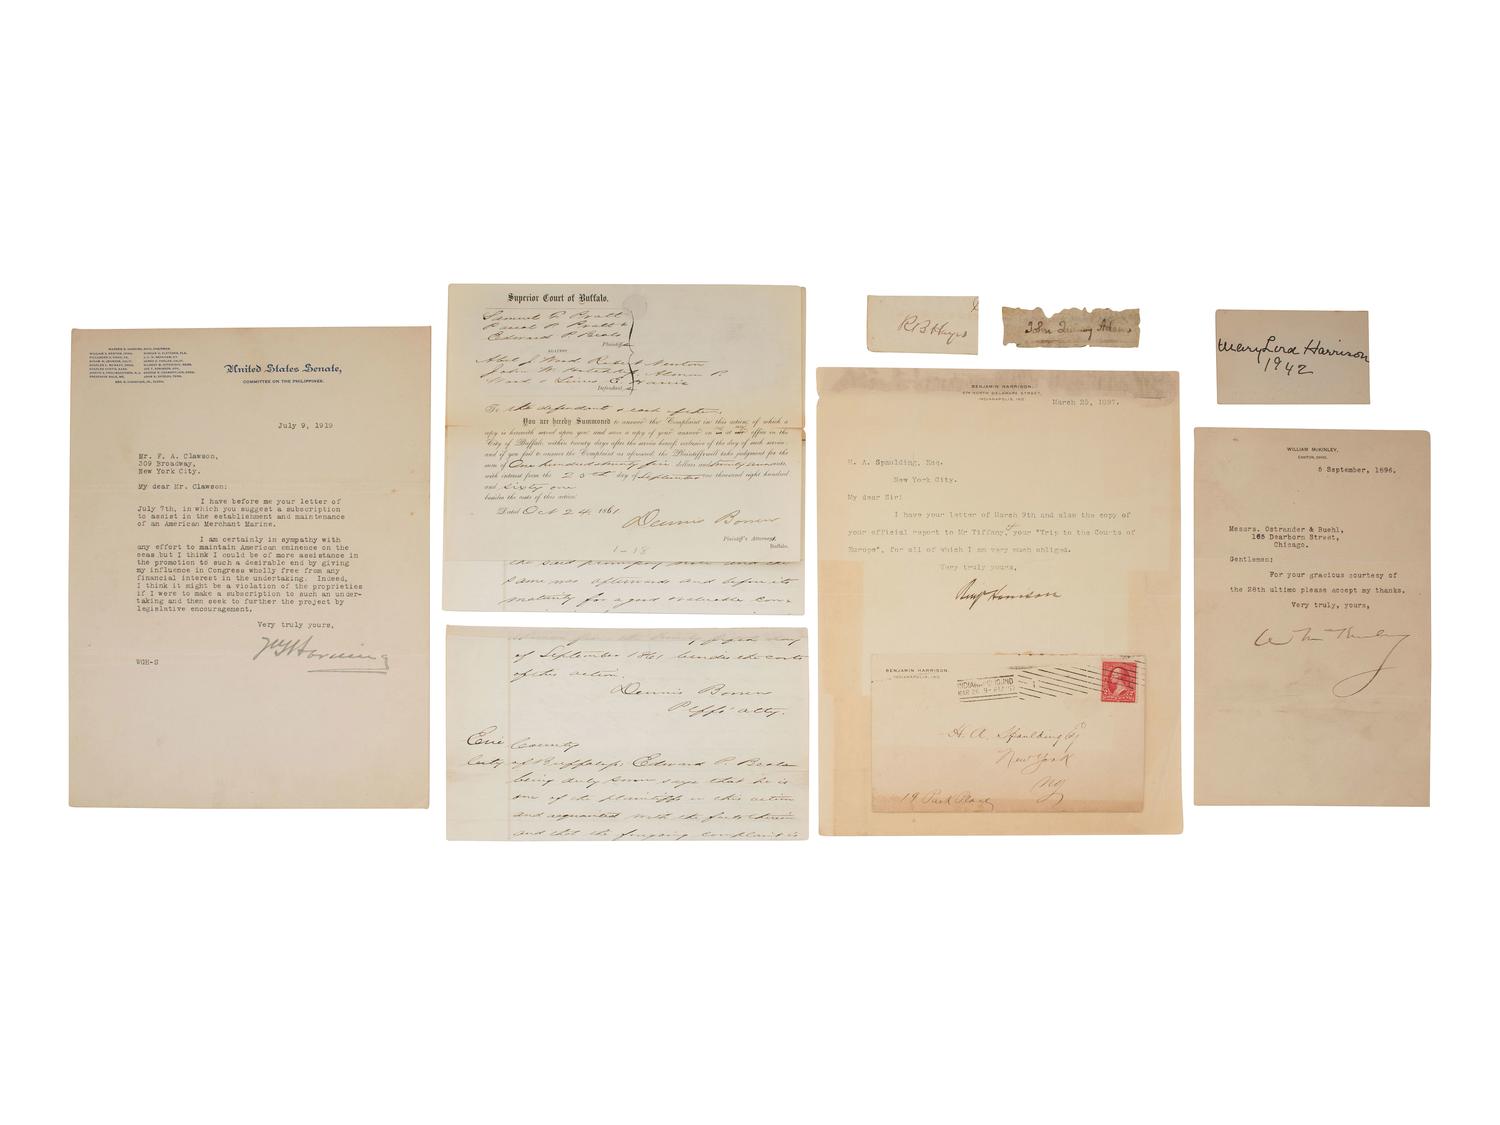 United States Senate,
COMMITTEE ON THE PHILIPPINES.
July 9, 1919
Mr. F. A. Clawson,
309 Broadway,
New York City.
My dear Mr. Clawson:
I have before me your letter of
July 7th, in which you suggest a subscription
to assist in the establishment and maintenance
of an American Merchant Marine.
I am certainly in sympathy with
any effort to maintain American eminence on the
seas but I think I could be of more assistance in
the promotion to such a desirable end by giving
my influence in Congress wholly free from any
financial interest in the undertaking. Indeed,
I think it might be a violation of the proprieties
if I were to make a subscription to such an under-
taking and then seek to further the project by
legislative encouragement.
Very truly yours,
WGHarding
WGH-S
Superior Court of Buffalo.
Samuel F. Pratt
Pascal P. Pratt &
Edward P. Beals
Plaintiffs
AGAINST
Abel J. Ward Robert Newton
John W. Alonzo P.
Ward & E.
Defendant
To the defendants & each of them.
You are hereby Summoned to answer the Complaint in this action, of which a
copy is herewith served upon you and serve a copy of your answer on at office in the
City of Buffalo within twenty days after the service hereof, exclusive of the day of such service:
and if you fail to answer the Complaint as aforesaid, the Plaintiffs will take judgment for the
sum of One hundred ninety five dollars and twenty cents,
with interest from the 20th day of September one thousand eight hundred
and sixty one
besides the costs of this action.
Dated Oct 24, 1861
Dennis Bowen
Plaintiff's Attorney.
Buffalo.
1-18
the said and the
same was afterwards and before its
maturity for a good valuable con-
day
of September 1861 besides the costs
of this action.
Dennis Bowen
Plffs' atty.
Erie County
City of Buffalo ss. Edward P. Beals
being duly sworn says that he is
one of the plaintiffs in this action
and acquainted with the facts therein
and that the foregoing complaint is
RBHayes
John Quincy Adams
BENJAMIN HARRISON,
674 NORTH DELAWARE STREET,
INDIANAPOLIS, IND.
March 25, 1897.
H. A. Spaulding, Esq.
New York City.
My dear Sir:
I have your letter of March 9th and also the copy of
your official report to Mr Tiffany, of your "Trip to the Courts of
Europe", for all of which I am very much obliged.
Very truly yours,
Benj Harrison
BENJAMIN HARRISON.
INDIANAPOLIS, IND.
H. A. Spaulding Esq
New York
NY
19 Park Place
Mary Lord Harrison
1942
WILLIAM McKINLEY,
CANTON, OHIO.
5 September, 1896.
Messrs. Ostrander & Buehl,
165 Dearborn Street,
Chicago.
Gentlemen:
For your gracious courtesy of
the 28th ultimo please accept my thanks.
Very truly, yours,
Wm McKinley